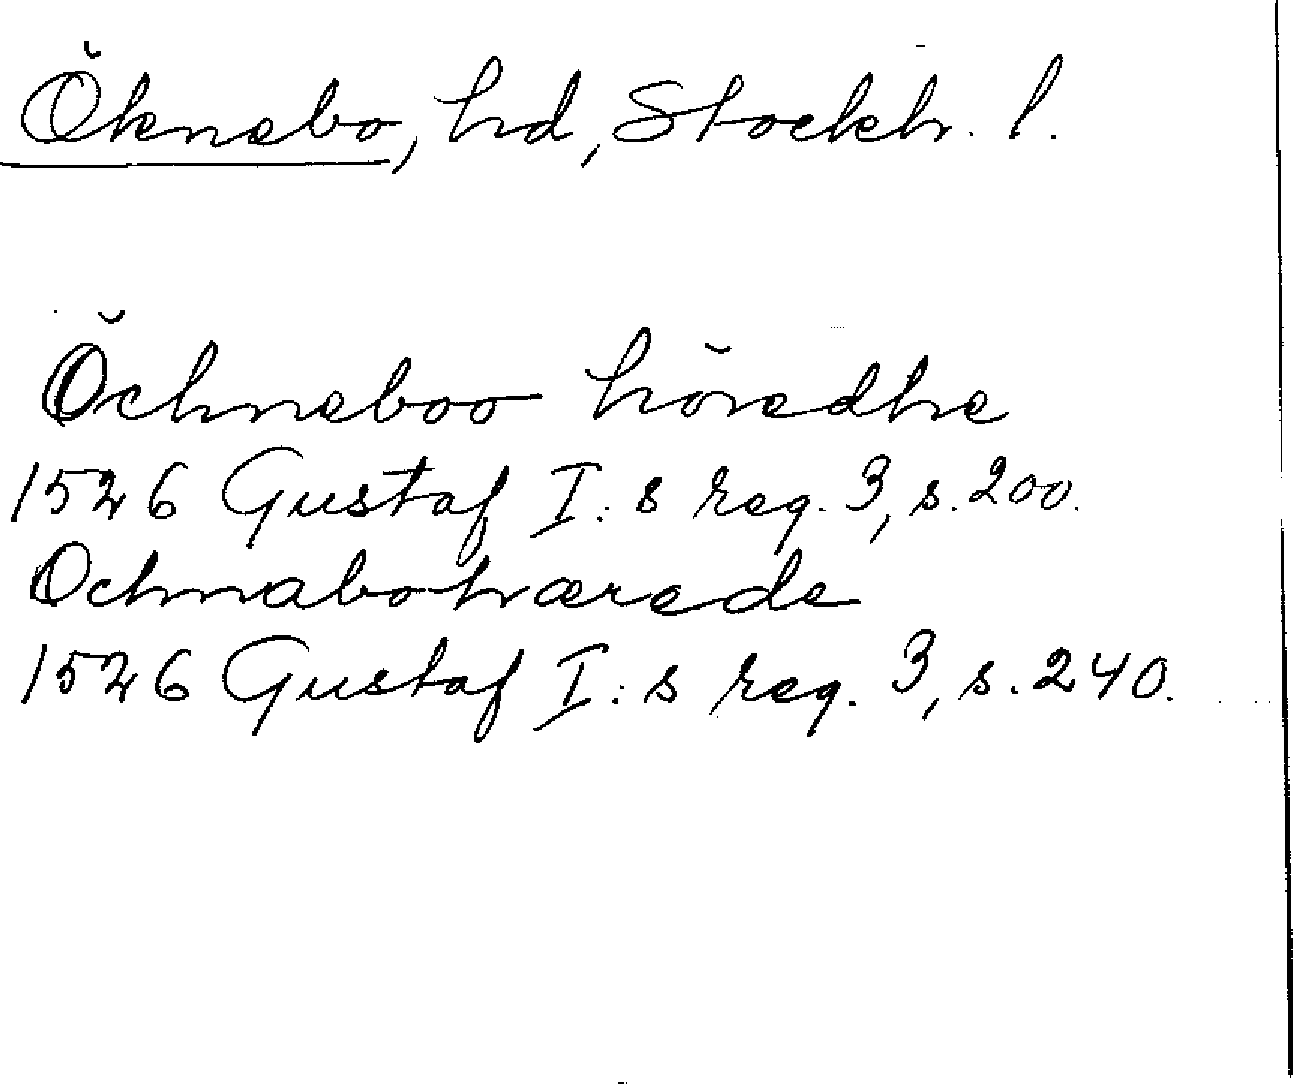 Öknebo, hd, Stockh. l.
Öchneboo höredhe
1526 Gustaf I:s reg. 3, s. 200.
Ochnabohærede
1526 Gustaf I:s reg. 3, s. 240.